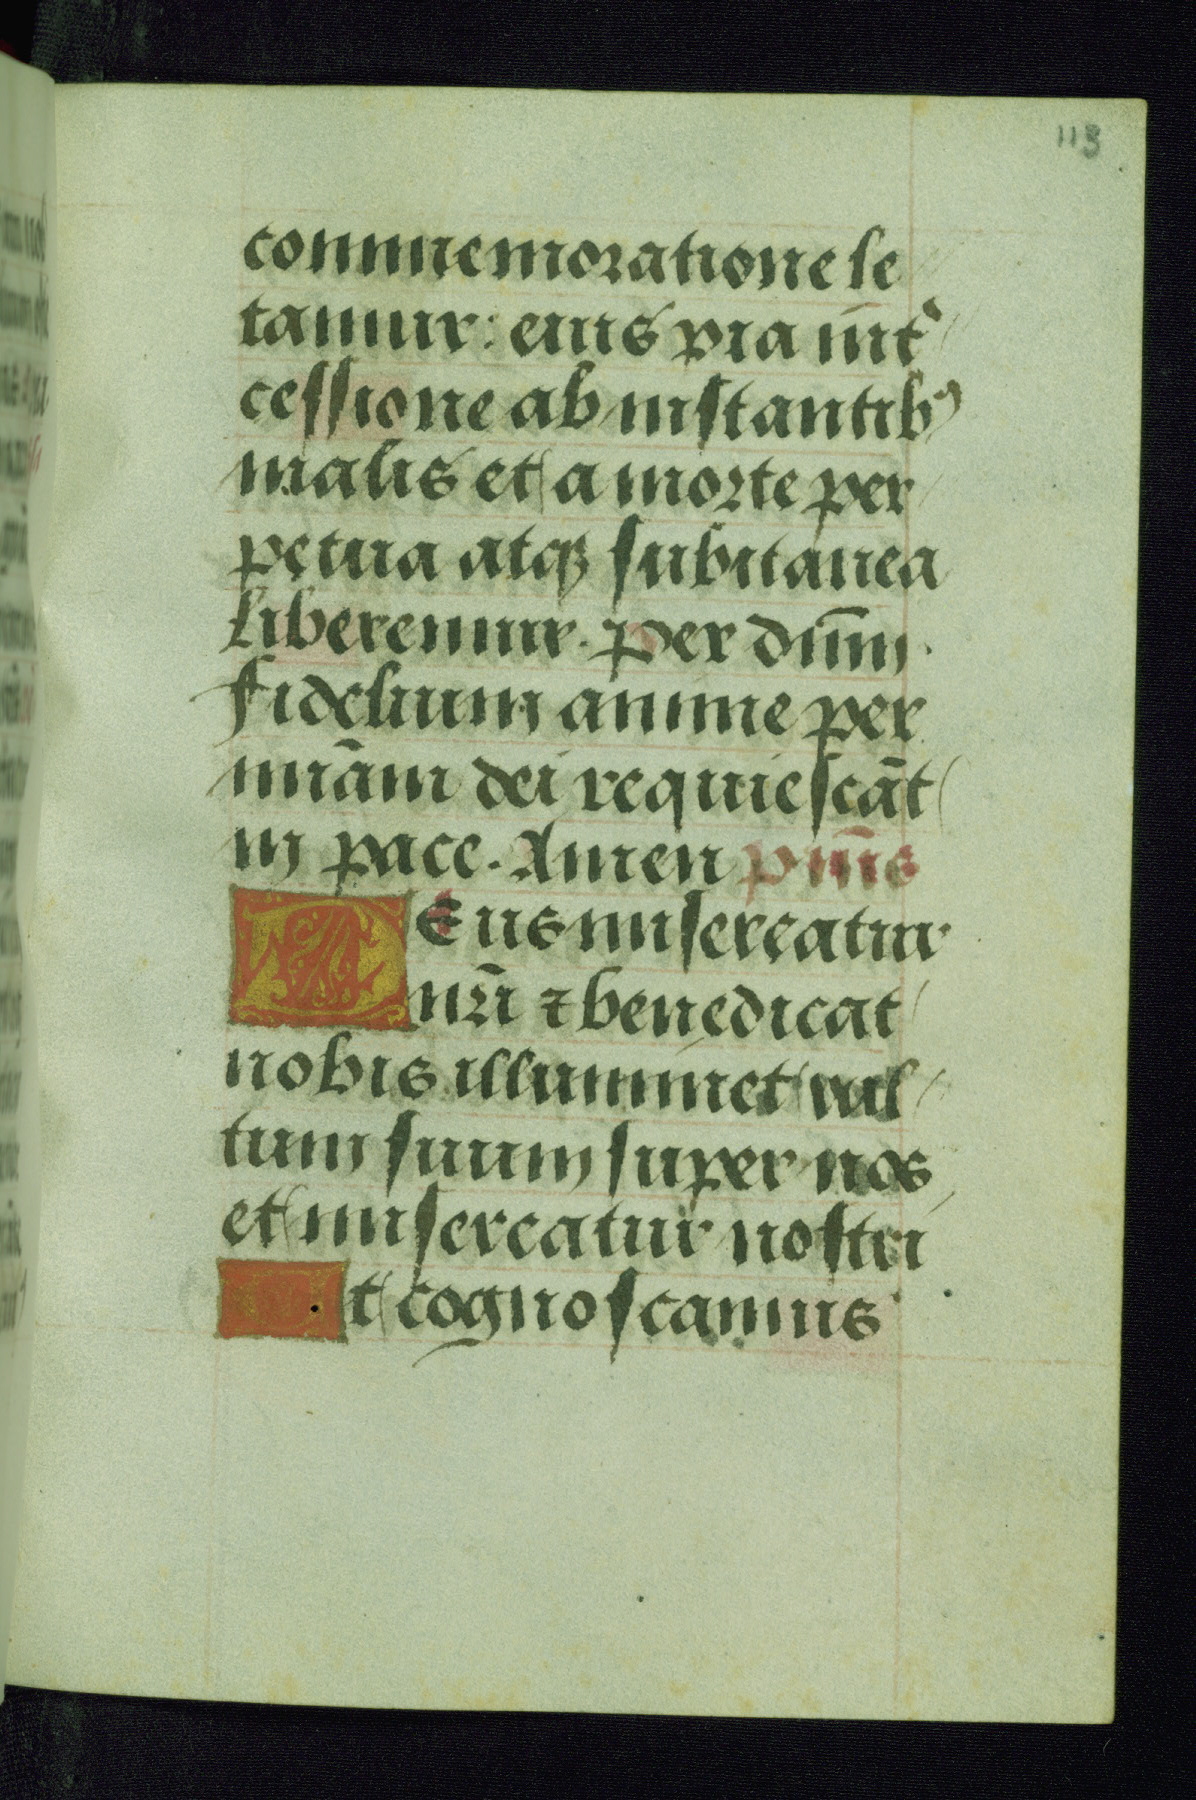 113
conmemoratione le
tamur: eius pia int᷑
cessione ab instantibꝰ
malis et a morte per
petua atqꝫ subitanea
liberemur. per dūm.
fidelium anime per
miām dei requiescāt
in pace. Amen p̄mīs
DEus misereatur
nr̄i ⁊ benedicat
nobis illuminet uul
tum suum super nos
et misereatur nostri
Ut cognoscamus